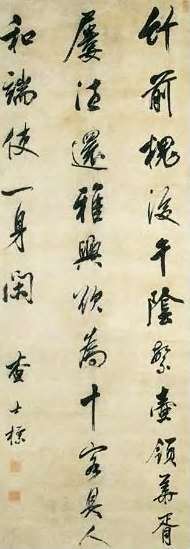 竹前槐後午陰繁壺領華胥
屢往還雅興欲為十客具人
和端使一身閑 查士標